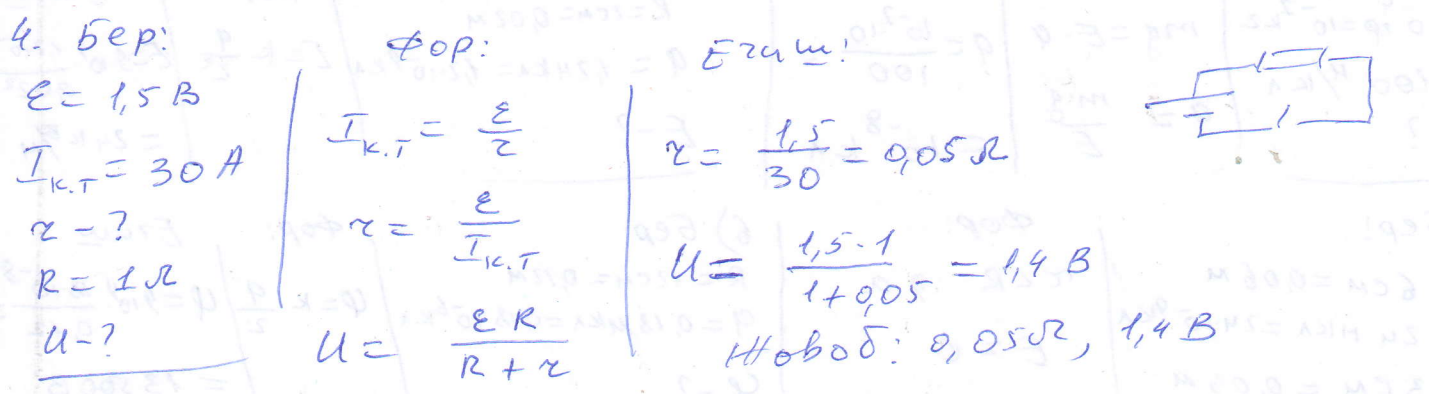 4. Бер:
ε = 1,5 В
I к.т = 30 А
r - ?
R = 1 Ω
U - ?
Фор:
I к.т = ε / r
r = ε / I к.т
U = εR / (R + r)
Ечиш:
r = 1,5 / 30 = 0,05 Ω
U = 1,5 · 1 / (1 + 0,05) = 1,4 В
Жовоб: 0,05 Ω, 1,4 В